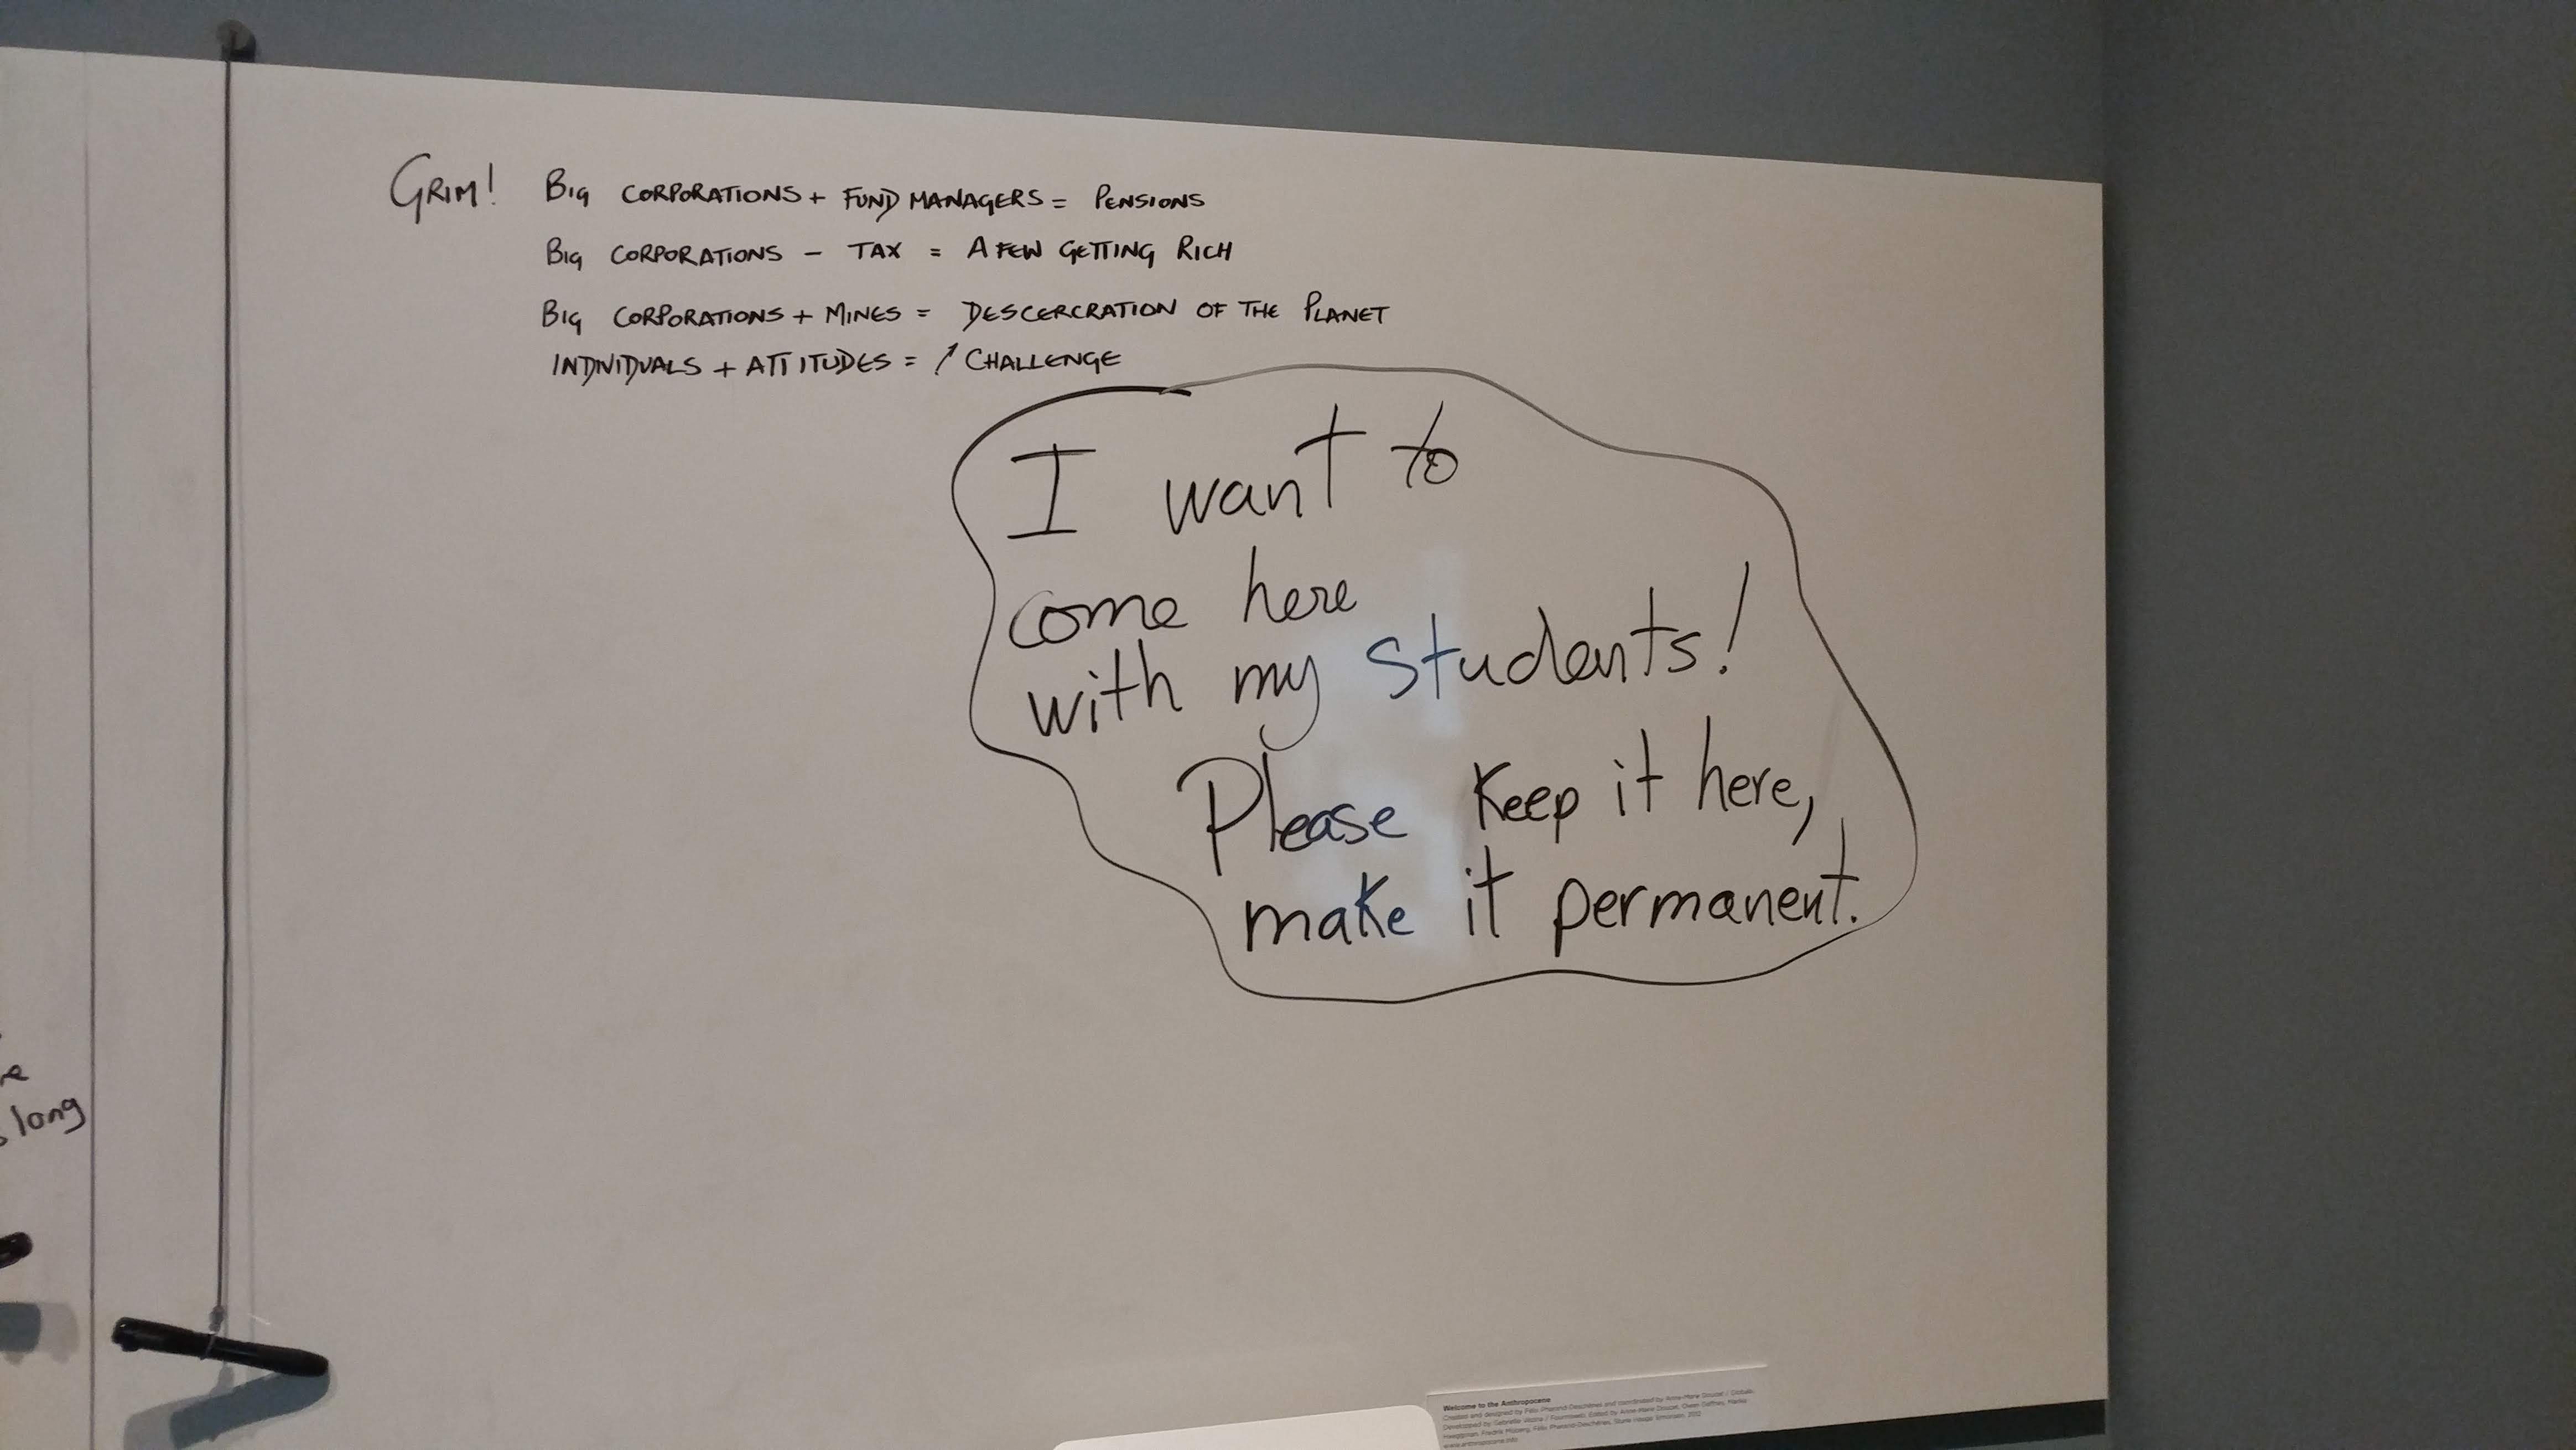 GRIM! BIG CORPORATIONS + FUND MANAGERS = PENSIONS
BIG CORPORATIONS - TAX = A FEW GETTING RICH
BIG CORPORATIONS + MINES = DESCERCRATION OF THE PLANET
INDIVIDUALS + ATTITUDES = ↑ CHALLENGE
I want to
come here
with my students!
Please keep it here,
make it permanent.
long
Welcome to the Anthropocene
www.anthropocene.info